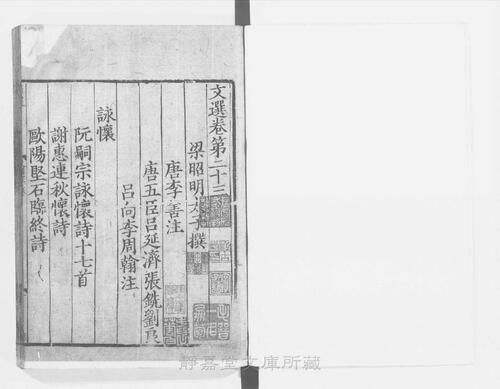 文選卷第二十三
梁昭明太子撰
唐李善注
唐五臣呂延濟張銑劉良
呂向李周翰注
詠懷
阮嗣宗詠懷詩十七首
謝惠連秋懷詩
歐陽堅石臨終詩
靜嘉堂文庫所藏